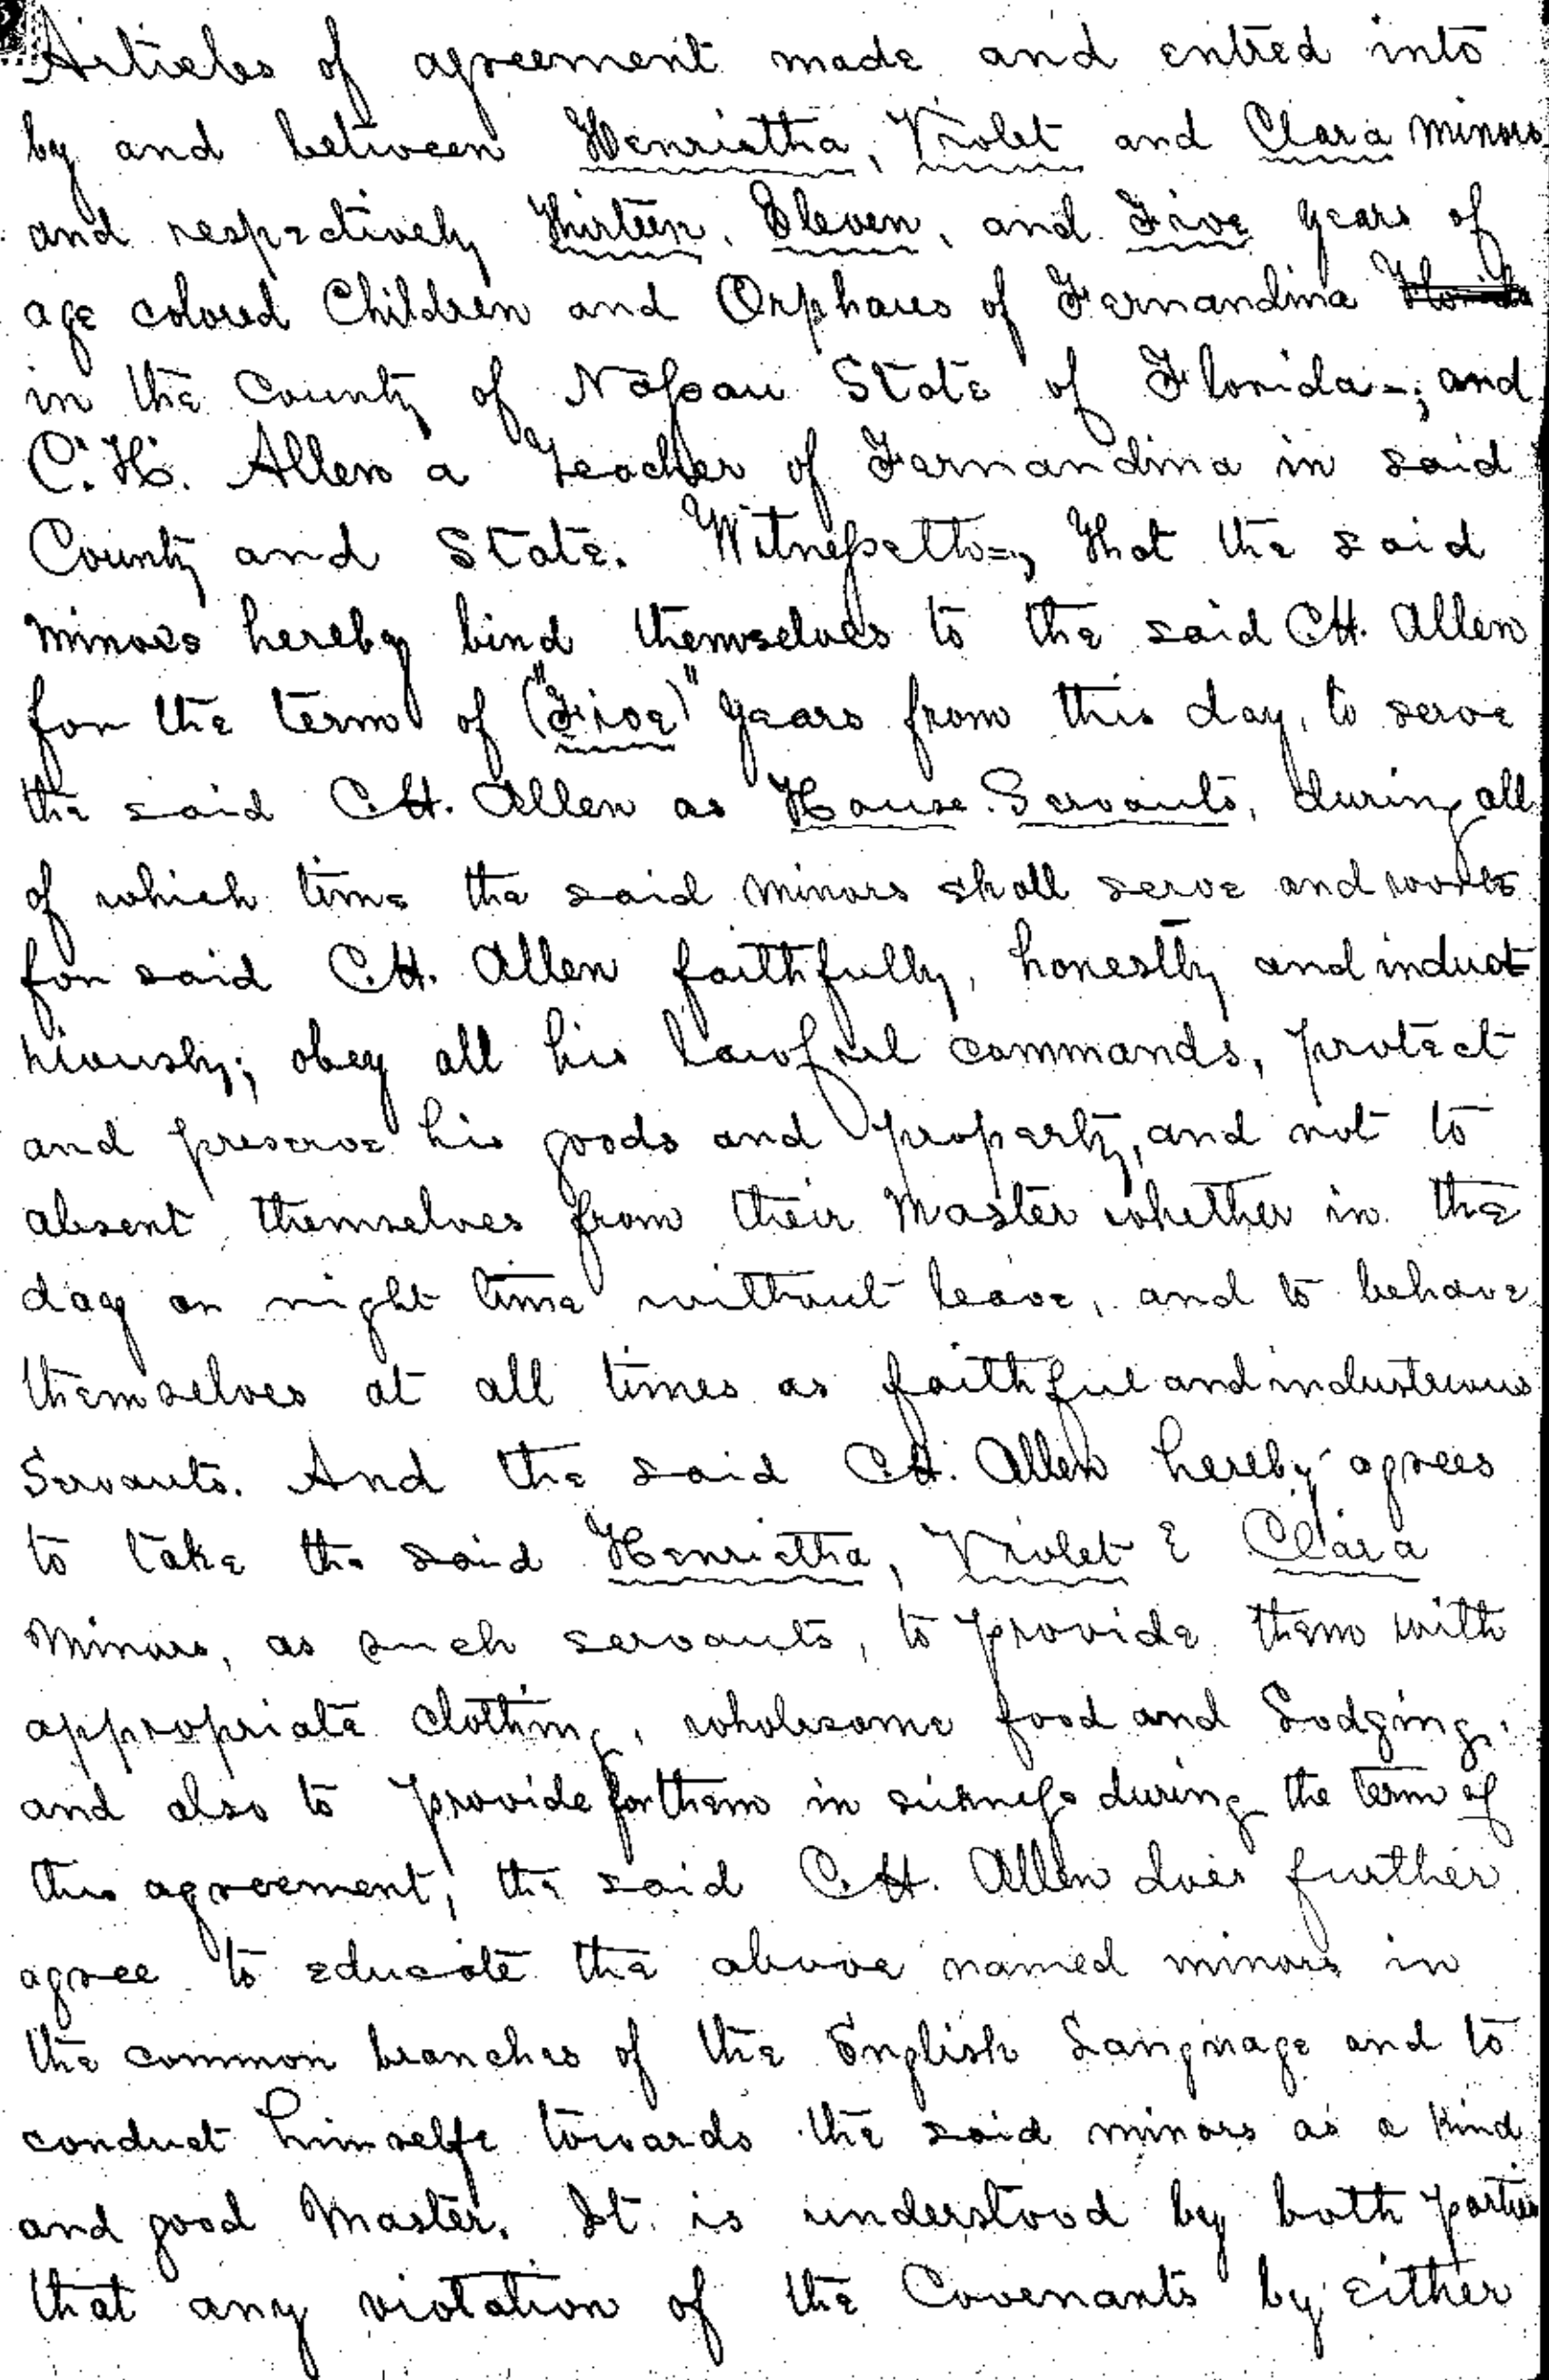 Articles of agreement made and entred into
by and between Henrietha, Violet and Clara minors
and respectively Thirteen, Eleven, and Five years of
age colored Children and Orphans of Fernandina Florida
in the County of Nassau State of Florida-; and
C. H. Allen a Teacher of Fernandina in said
County and State. Witnesseth-, That the said
minors hereby bind themselves to the said C.H. Allen
for the term of ("Five)" years from this day, to serve
the said C.H. Allen as House Servants, during all
of which time the said minors shall serve and work
for said C.H. Allen faithfully, honestly and indust
riously; obey all his lawful commands, protect
and preserve his goods and property, and not to
absent themselves from their Master whether in the
day or night time without leave, and to behave
themselves at all times as faithful and industrious
Servants. And the said C.H. Allen hereby agrees
to take the said Henrietha, Violet & Clara
minors, as such servants, to provide them with
appropriate clothing, wholesome food and Lodging,
and also to provide for them in sickness during the term of
this agreement, the said C.H. Allen does further
agree to educate the above named minors in
the common branches of the English Language and to
conduct himselfe towards the said minors as a kind
and good Master. It is understood by both parties
that any violation of the Covenants by either